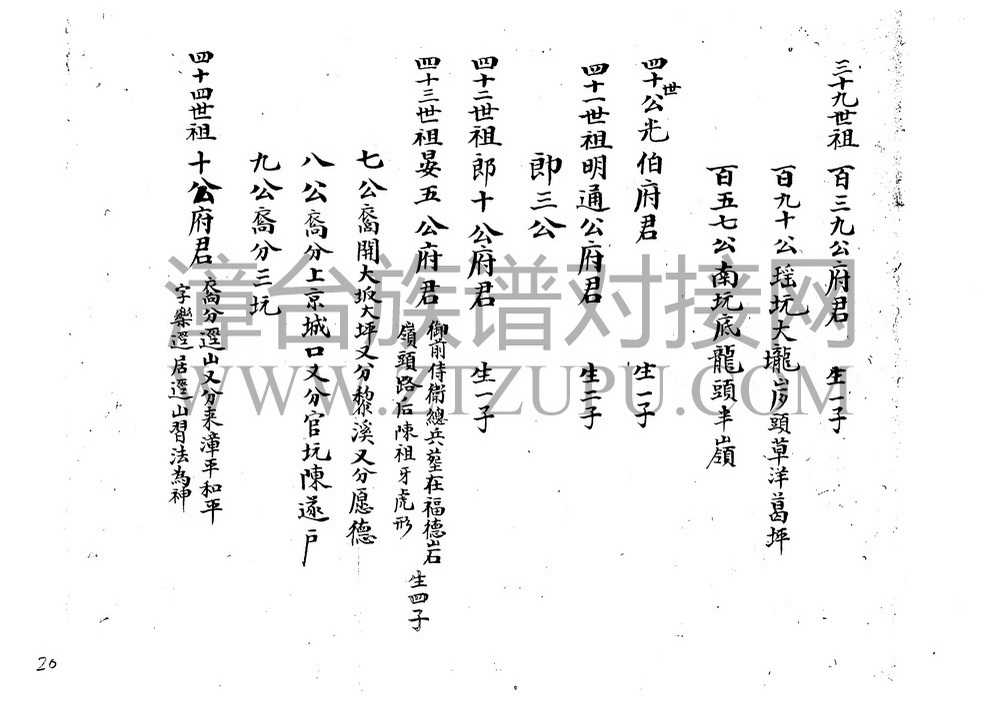 三十九世祖 百三九公府君 生一子
百九十公瑶坑大壠頭草洋葛坪
百五七公南坑底龍頭半嶺
四十世公光伯府君 生一子
四十一世祖明通公府君 生二子
郎三公
四十二世祖郎十公府君 生一子
四十三世祖晏五公府君 御前侍衛總兵墓在福德岩
嶺頭路后陳祖牙虎形 生四子
七公裔開大坂大坪又分黎溪又分愿德
八公裔分上京城口又分官坑陳遂戶
九公裔分三坑
四十四世祖十公府君 裔分遥山又分來漳平和平
字樂遥居遥山習法為神
漳台族谱对接网
WWW.ZTZUPU.COM
20